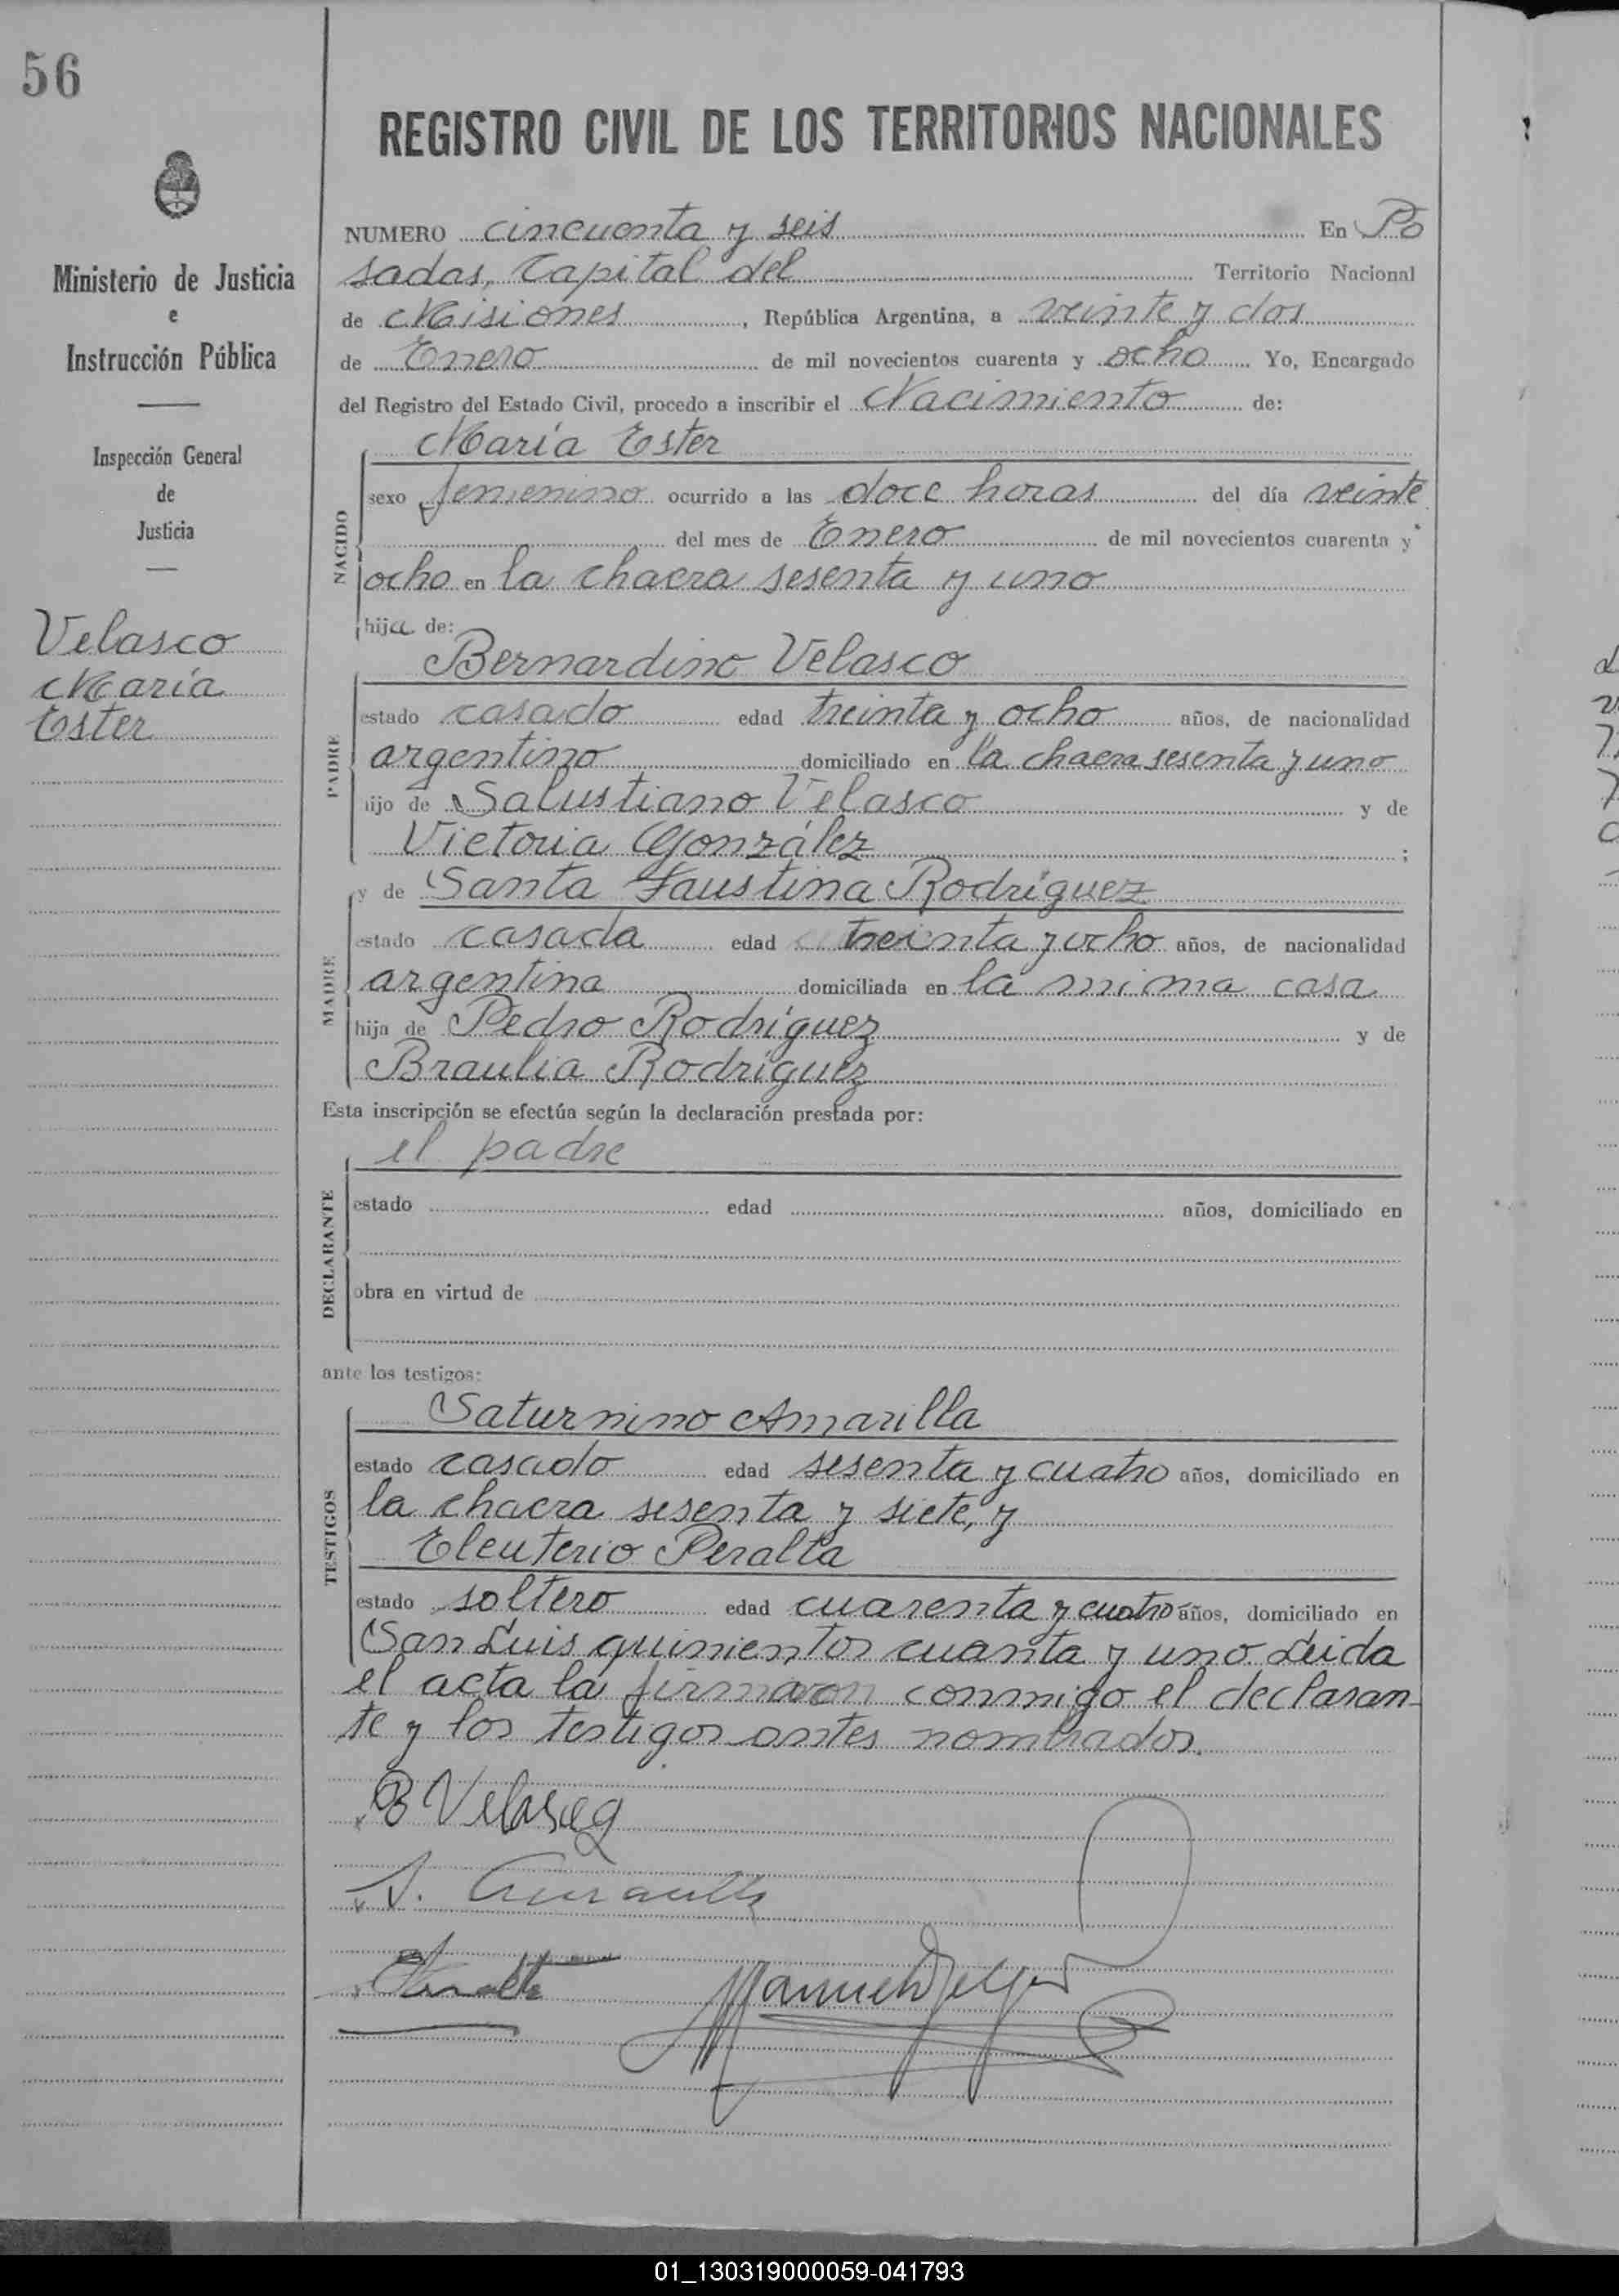 56
REGISTRO CIVIL DE LOS TERRITORIOS NACIONALES
Ministerio de Justicia
e
Instrucción Pública
Inspección General
de
Justicia
Velasco
María
Ester
NUMERO cincuenta y seis En Po
sadas, Capital del Territorio Nacional
de Misiones, República Argentina, a veinte y dos
de Enero de mil novecientos cuarenta y ocho Yo, Encargado
del Registro del Estado Civil, procedo a inscribir el Nacimiento de:
NACIDO
María Ester
sexo femenino ocurrido a las doce horas del día veinte
del mes de Enero de mil novecientos cuarenta y
ocho en la chacra sesenta y uno
hija de:
PADRE
Bernardino Velasco
estado casado edad treinta y ocho años, de nacionalidad
argentino domiciliado en la chacra sesenta y uno
hijo de Salustiano Velasco y de
Victoria González;
MADRE
y de Santa Faustina Rodríguez
estado casada edad treinta y ocho años, de nacionalidad
argentina domiciliada en la mima casa
hija de Pedro Rodríguez y de
Braulia Rodríguez
Esta inscripción se efectúa según la declaración prestada por:
DECLARANTE
el padre
estado edad años, domiciliado en
obra en virtud de
ante los testigos:
TESTIGOS
Saturnino Amarilla
estado casado edad sesenta y cuatro años, domiciliado en
la chacra sesenta y siete, y
Eleuterio Peralta
estado soltero edad cuarenta y cuatro años, domiciliado en
San Luis quinientos cuanta y uno Leida
el acta la firmaron conmigo el declaran-
te y los testigos antes nombrados.
B Velasco
S. Amarilla
01_130319000059-041793